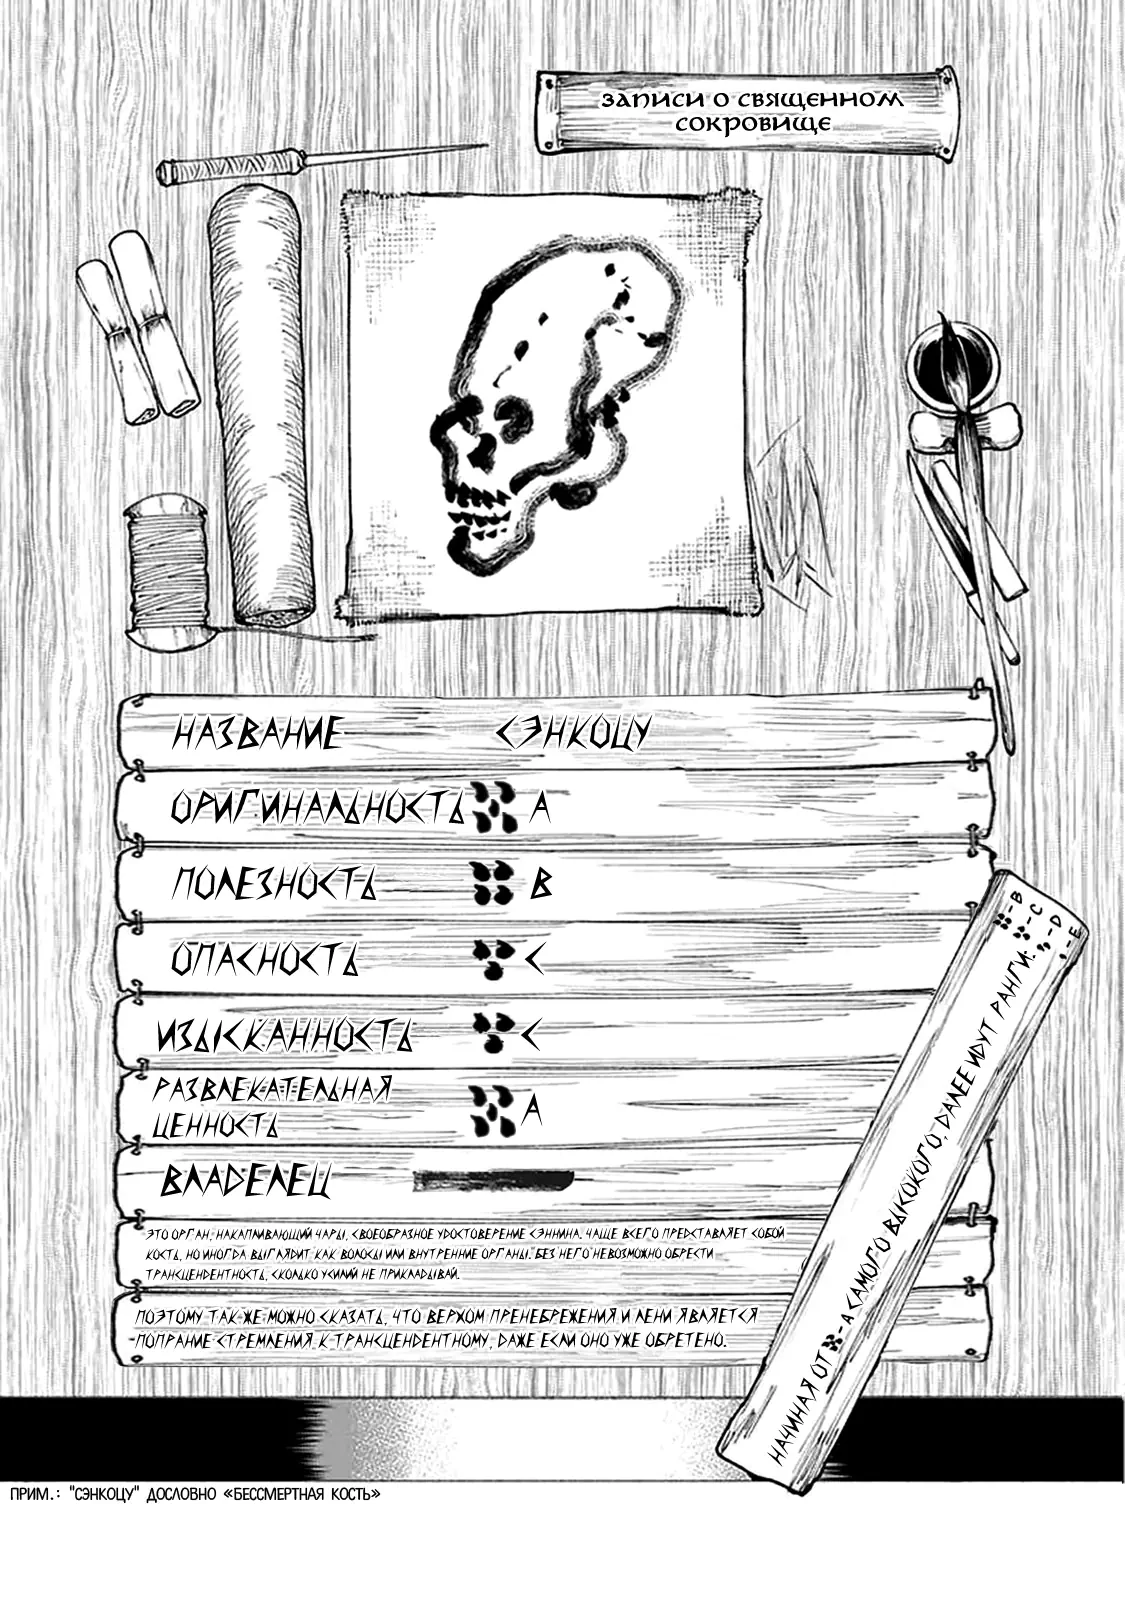 ЗАПИСИ О СВЯЩЕННОМ
СОКРОВИЩЕ
НАЗВАНИЕ СЭНКОЦУ
ОРИГИНАЛЬНОСТЬ A
ПОЛЕЗНОСТЬ B
ОПАСНОСТЬ C
ИЗЫСКАННОСТЬ C
РАЗВЛЕКАТЕЛЬНАЯ
ЦЕННОСТЬ A
ВЛАДЕЛЕЦ
ЭТО ОРГАН, НАКАПЛИВАЮЩИЙ ЧАРЫ, СВОЕОБРАЗНОЕ УДОСТОВЕРЕНИЕ СЭННИНА. ЧАЩЕ ВСЕГО ПРЕДСТАВЛЯЕТ СОБОЙ
КОСТЬ, НО ИНОГДА ВЫГЛЯДИТ КАК ВОЛОСЫ ИЛИ ВНУТРЕННИЕ ОРГАНЫ. БЕЗ НЕГО НЕВОЗМОЖНО ОБРЕСТИ
ТРАНСЦЕНДЕНТНОСТЬ, СКОЛЬКО УСИЛИЙ НЕ ПРИКЛАДЫВАЙ.
ПОЭТОМУ ТАК ЖЕ МОЖНО СКАЗАТЬ, ЧТО ВЕРХОМ ПРЕНЕБРЕЖЕНИЯ И ЛЕНИ ЯВЛЯЕТСЯ
ПОПРАНИЕ СТРЕМЛЕНИЯ К ТРАНСЦЕНДЕНТНОМУ, ДАЖЕ ЕСЛИ ОНО УЖЕ ОБРЕТЕНО.
НАЧИНАЯ ОТ - A САМОГО ВЫСОКОГО, ДАЛЕЕ ИДУТ РАНГИ:
- B
- C
- D
- E
ПРИМ.: "СЭНКОЦУ" ДОСЛОВНО «БЕССМЕРТНАЯ КОСТЬ»